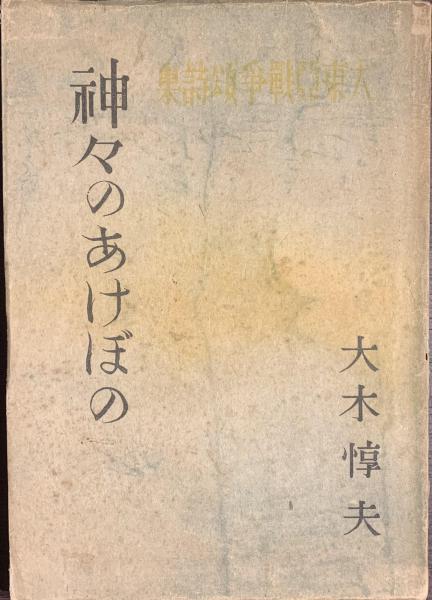 大東亞戰爭頌詩集
神々のあけぼの
大木惇夫